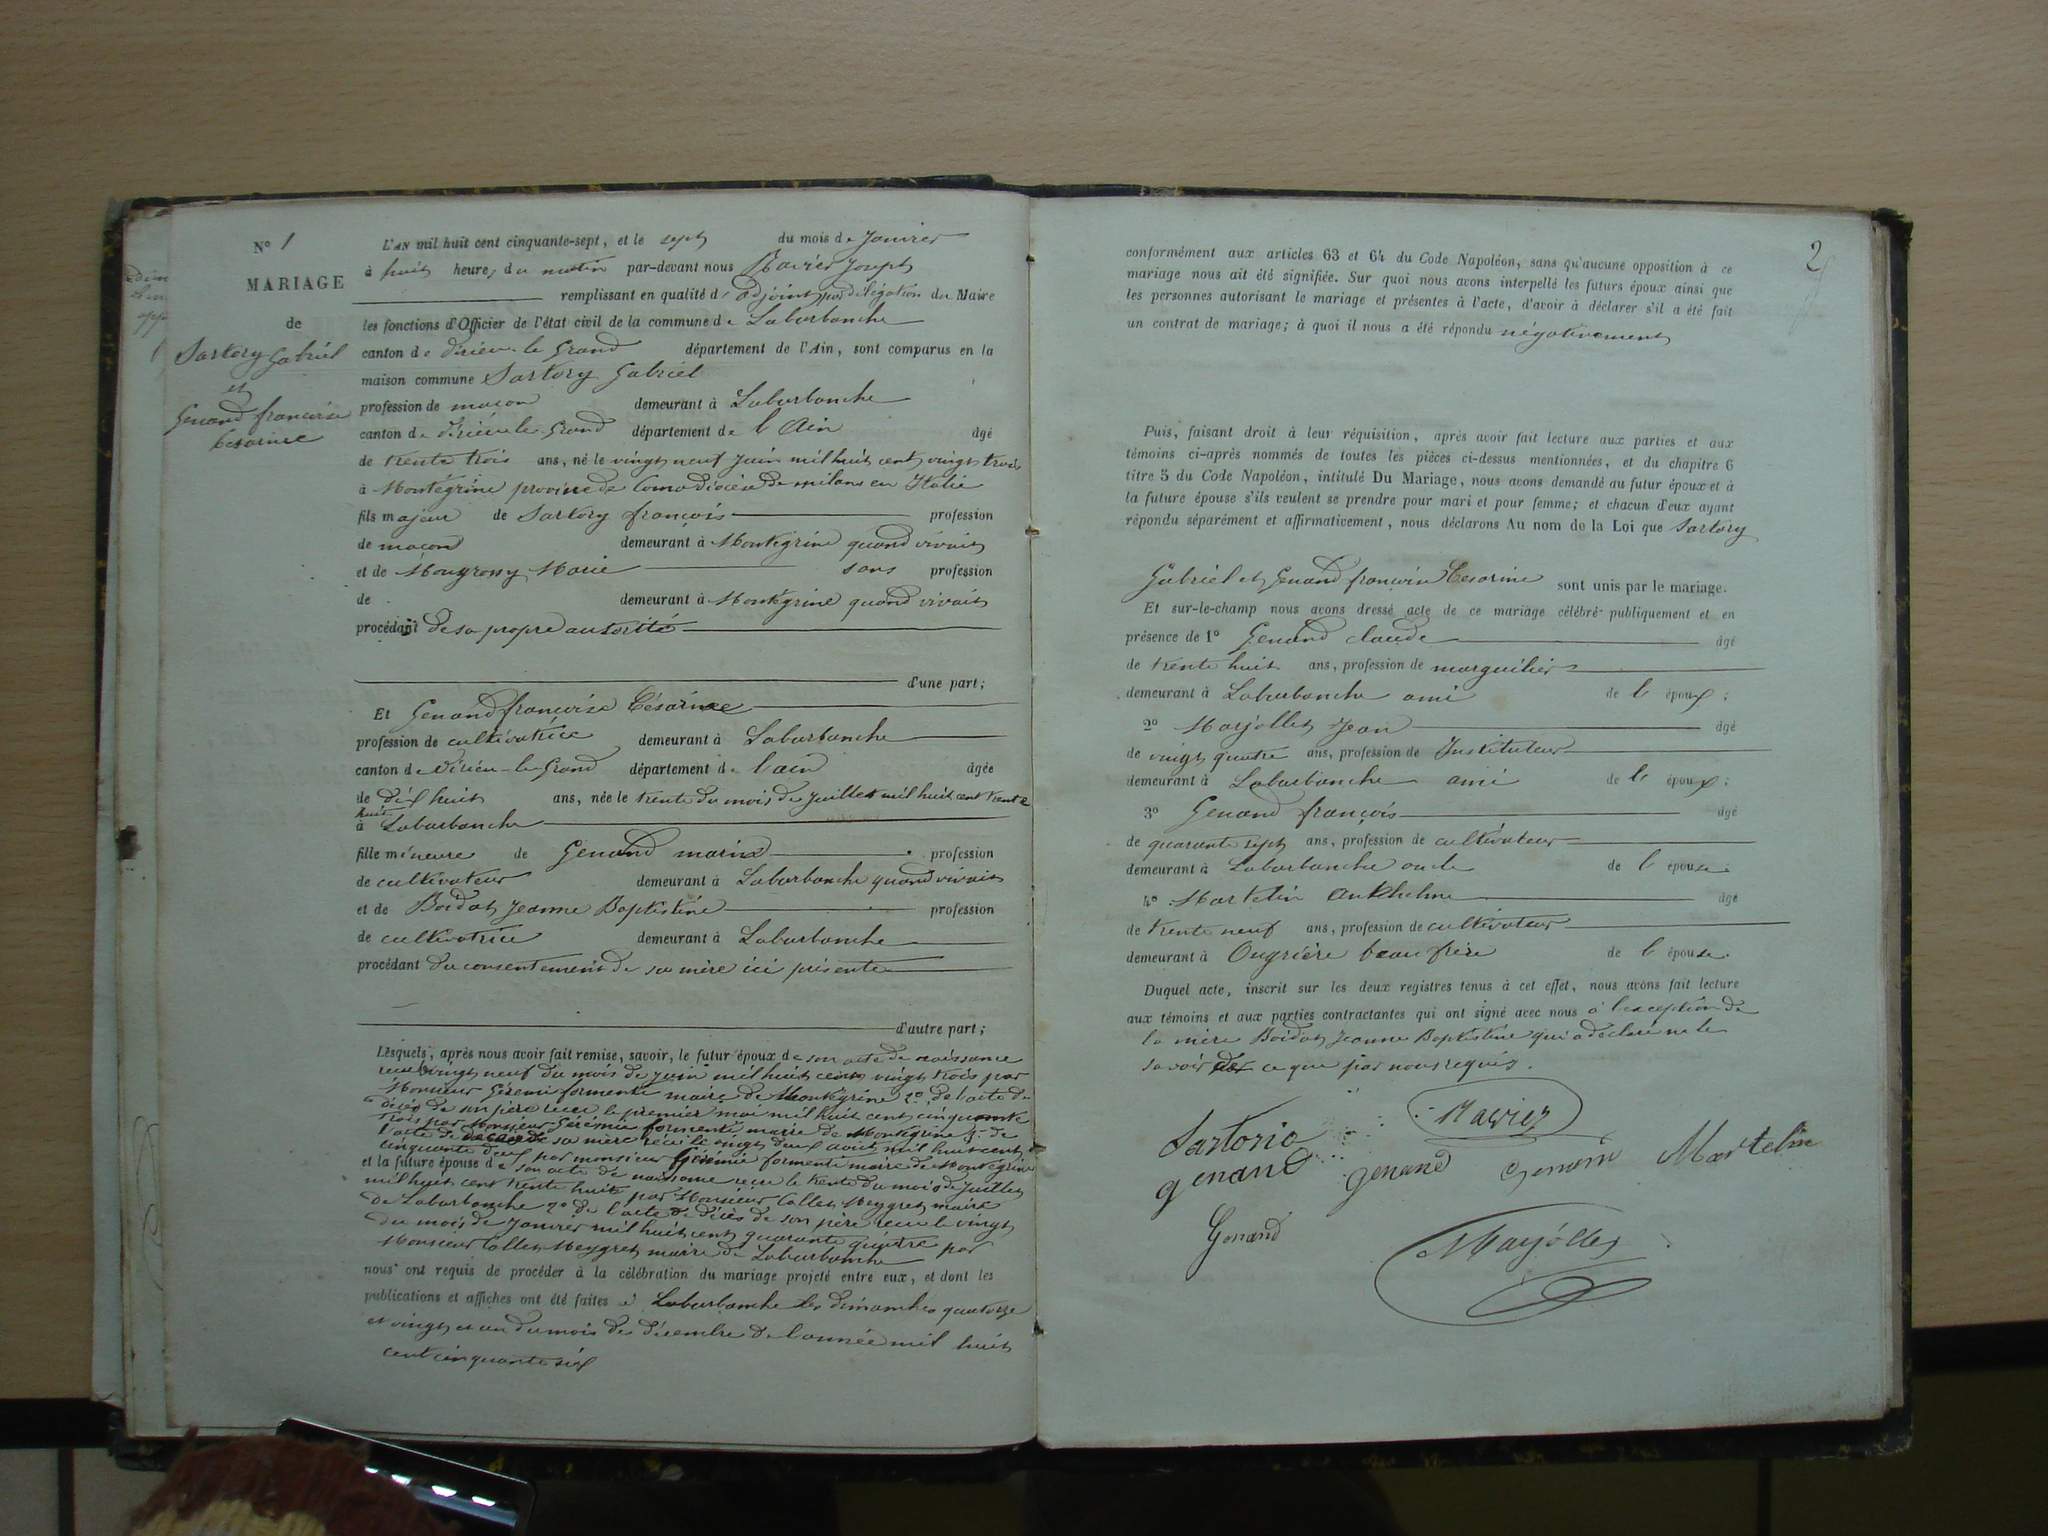 N° 1
MARIAGE
de
Sartory Gabriel
et
Genand françoise
Césarine
L'AN mil huit cent cinquante-sept, et le sept du mois de Janvier
à huit heures du matin par-devant nous Joseph
remplissant en qualité d'adjoint par délégation du Maire
les fonctions d'Officier de l'état civil de la commune de Laburbanche
canton de virieu-le Grand département de l'Ain, sont comparus en la
maison commune Sartory Gabriel
profession de maçon demeurant à Laburbanche
canton de virieu le-Grand département de l'Ain âgé
de trente trois ans, né le vingt neuf Juin mil huit cent vingt trois
à Montégrine province de Como diocèse de milano en Italie
fils majeur de Sartory françois profession
de maçon demeurant à Montégrine quand vivait
et de Marie sans profession
de demeurant à Montégrine quand vivait
procédant de sa propre autorité
d'une part;
Et Genand françoise Césarine
profession de cultivatrice demeurant à Laburbanche
canton de Virieu-le-Grand département de l'ain âgée
de dix huit ans, née le trente du mois de Juillet mil huit cent trente
huit
à Laburbanche
fille mineure de Genand marin profession
de cultivateur demeurant à Laburbanche quand vivait
et de Boidat Jeanne Baptistine profession
de cultivatrice demeurant à Laburbanche
procédant du consentement de sa mère ici présente
d'autre part;
Lesquels, après nous avoir fait remise, savoir, le futur époux de son acte de naissance
reçu le vingt neuf du mois de juin mil huit cent vingt trois par
Monsieur Gérémi formenti maire de Montégrine 2° de l'acte de
décès de son père reçu le premier mai mil huit cent cinquante
trois par Monsieur Gérémie formenti maire de Montégrine 3° de
l'acte de décès de sa mère reçu le vingt deux août mil huit cent
cinquante deux par monsieur Gérémie formenti maire de Montégrine
et la future épouse de son acte de naissance reçu le trente du mois de Juillet
mil huit cent trente huit par Monsieur Collet Meygret maire
de Laburbanche 2° de l'acte de décès de son père reçu le vingt
du mois de Janvier mil huit cent quarante quatre par
Monsieur Collet Meygret maire de Laburbanche
nous ont requis de procéder à la célébration du mariage projeté entre eux, et dont les
publications et affiches ont été faites à Laburbanche les dimanches quatorze
et vingt et un du mois de décembre de l'année mil huit
cent cinquante six
2
conformément aux articles 63 et 64 du Code Napoléon, sans qu'aucune opposition à ce
mariage nous ait été signifiée. Sur quoi nous avons interpellé les futurs époux ainsi que
les personnes autorisant le mariage et présentes à l'acte, d'avoir à déclarer s'il a été fait
un contrat de mariage; à quoi il nous a été répondu négativement
Puis, faisant droit à leur réquisition, après avoir fait lecture aux parties et aux
témoins ci-après nommés de toutes les pièces ci-dessus mentionnées, et du chapitre 6
titre 5 du Code Napoléon, intitulé Du Mariage, nous avons demandé au futur époux et à
la future épouse s'ils veulent se prendre pour mari et pour femme; et chacun d'eux ayant
répondu séparément et affirmativement, nous déclarons Au nom de la Loi que Sartory
Gabriel et Genand françoise Césarine sont unis par le mariage.
Et sur-le-champ nous avons dressé acte de ce mariage célébré publiquement et en
présence de 1° Genand claude âgé
de trente huit ans, profession de marguillier
demeurant à Laburbanche ami de l'époux;
2° Marjollet Jean âgé
de vingt quatre ans, profession de Instituteur
demeurant à Laburbanche ami de l'époux;
3° Genand françois âgé
de quarante sept ans, profession de cultivateur
demeurant à Laburbanche oncle de l'épouse.
4° Martelin Anthelme âgé
de trente neuf ans, profession de cultivateur
demeurant à Ougrière beau frère de l'épouse.
Duquel acte, inscrit sur les deux registres tenus à cet effet, nous avons fait lecture
aux témoins et aux parties contractantes qui ont signé avec nous à l'exception de
la mère Boidat Jeanne Baptistine qui a déclaré ne le
savoir de ce que par nous requis.
Sartorio
genand genand Martelin
Genand Marjollet